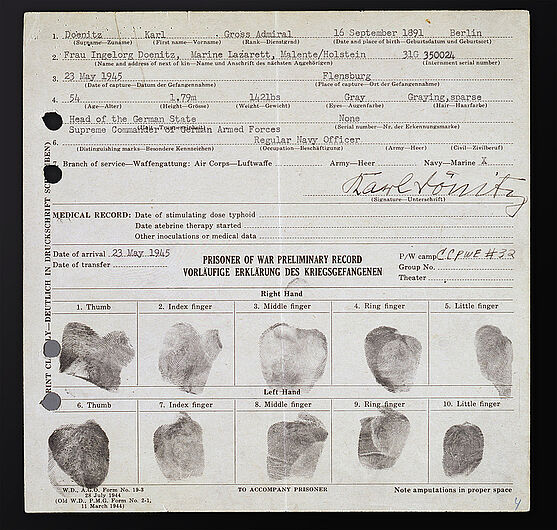 1. Doenitz Karl Gross Admiral 16 September 1891 Berlin
(Surname—Zuname) (First name—Vorname) (Rank—Dienstgrad) (Date and place of birth—Geburtsdatum und Geburtsort)
2. Frau Ingelorg Doenitz, Marine Lazarett, Malente/Holstein 31G 350024
(Name and address of next of kin—Name und Anschrift des nächsten Angehörigen) (Internment serial number)
3. 23 May 1945 Flensburg
(Date of capture—Datum der Gefangennahme) (Place of capture—Ort der Gefangennahme)
4. 54 1.79m 142lbs Gray Graying, sparse
(Age—Alter) (Height—Grösse) (Weight—Gewicht) (Eyes—Augenfarbe) (Hair—Haarfarbe)
Head of the German State None
Supreme Commander of German Armed Forces (Serial number—Nr. der Erkennungsmarke)
6. Regular Navy Officer
(Distinguishing marks—Besondere Kennzeichen) (Occupation—Beschäftigung) (Army—Heer) (Civil—Zivilberuf)
Branch of service—Waffengattung: Air Corps—Luftwaffe Army—Heer Navy—Marine X
Karl Dönitz
(Signature—Unterschrift)
MEDICAL RECORD: Date of stimulating dose typhoid
Date atebrine therapy started
Other inoculations or medical data
Date of arrival 23 May 1945
Date of transfer
PRISONER OF WAR PRELIMINARY RECORD
VORLÄUFIGE ERKLÄRUNG DES KRIEGSGEFANGENEN
P/W camp CCPWE #32
Group No.
Theater
Right Hand
1. Thumb 2. Index finger 3. Middle finger 4. Ring finger 5. Little finger
Left Hand
6. Thumb 7. Index finger 8. Middle finger 9. Ring finger 10. Little finger
W.D., A.G.O. Form No. 19-3
28 July 1944
(Old W.D., P.M.G. Form No. 2-1,
11 March 1944)
TO ACCOMPANY PRISONER
Note amputations in proper space
—DEUTLICH IN DRUCKSCHRIFT